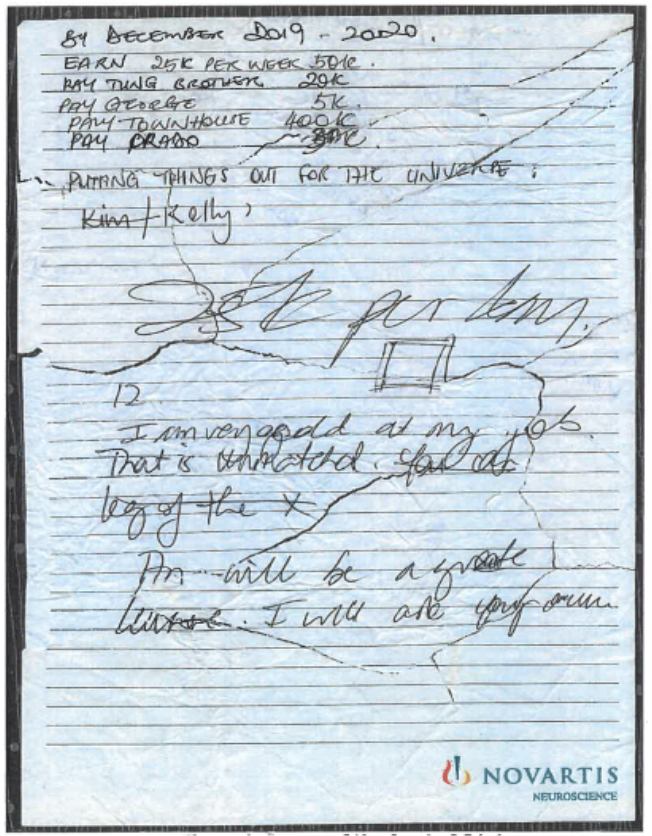 BY DECEMBER 2019 - 2020.
EARN 25K PER WEEK 50K.
PAY TUNG BROTHER 20K
PAY GEORGE 5K.
PAY TOWNHOUSE 400K
PAY PRADO
PUTTING THINGS OUT FOR THE UNIVERSE:
Kim / Kelly
25K per
12
I am very good at my job.
That is unmatched.
leg of the X
will be a
I will
NOVARTIS
NEUROSCIENCE